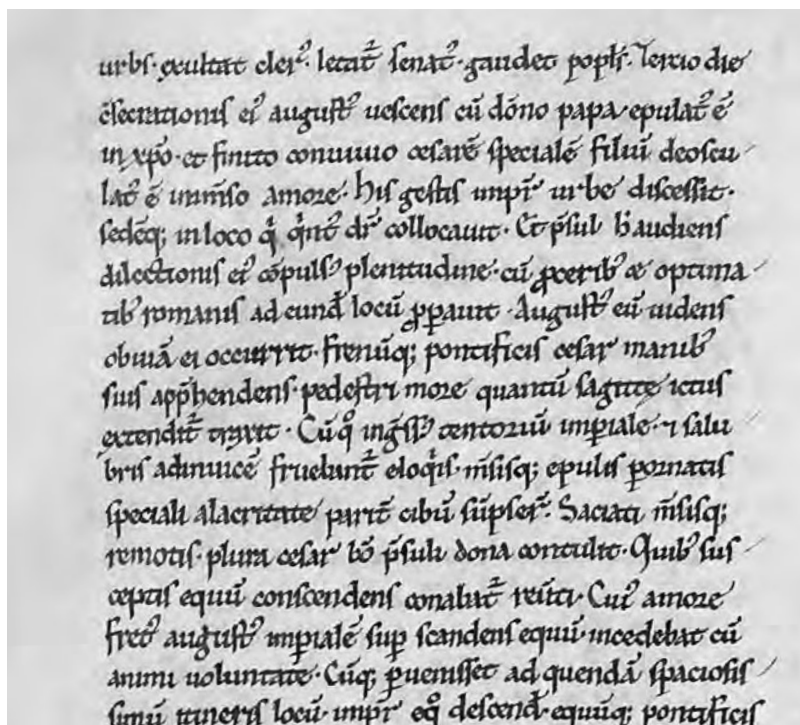 urbs. exultat cler᷒. letat᷑ senat᷒. gaudet popl̄s. Tercio die
c̄secrationis ei᷒ august᷒ uescens cū dōno papa epulat᷑ ē
in xp̄o. et finito conuiuio cesarē specialē filiū deoscu
lat᷒ ē inm̄so amore. his gestis imp̄r urbe discessit.
sedēq; in loco qͥ qͥnt᷒ dr̄ collocauit. Et p̄sul h̄ audiens
dilectionis ei᷒ cōpuls᷒ plenitudine. cū ꝓcerib᷒ ac optima
tib᷒ romanis ad eund̄ locū ꝓꝑauit. August᷒ eū uidens
obuiā ei occurrit. frenūq; pontificis cesar manib᷒
suis app̄hendens. pedestri more quantū sagitte ictus
extendit᷑ traxit. Cū qͦ inḡss᷒ tentoriū imꝑiale. ⁊ salu
bris adinuicē fruebant᷑ eloqͥis. m̄sisq; epulis ꝑornatis
speciali alacritate parit᷑ cibū sūpser̄. Saciati m̄sisq;
remotis. plura cesar bō p̄suli dona contulit. Quib᷒ sus
ceptis equū conscendens conabat᷑ reūti. Cui᷒ amore
fret᷒ august᷒ imꝑialē suꝑ scandens equū. incedebat cū
animi uoluntate. Cūq; ꝑuenisset ad quendā spaciosis
simū itineris locū. imp̄r eqͦ descend̄. equūq; pontificis